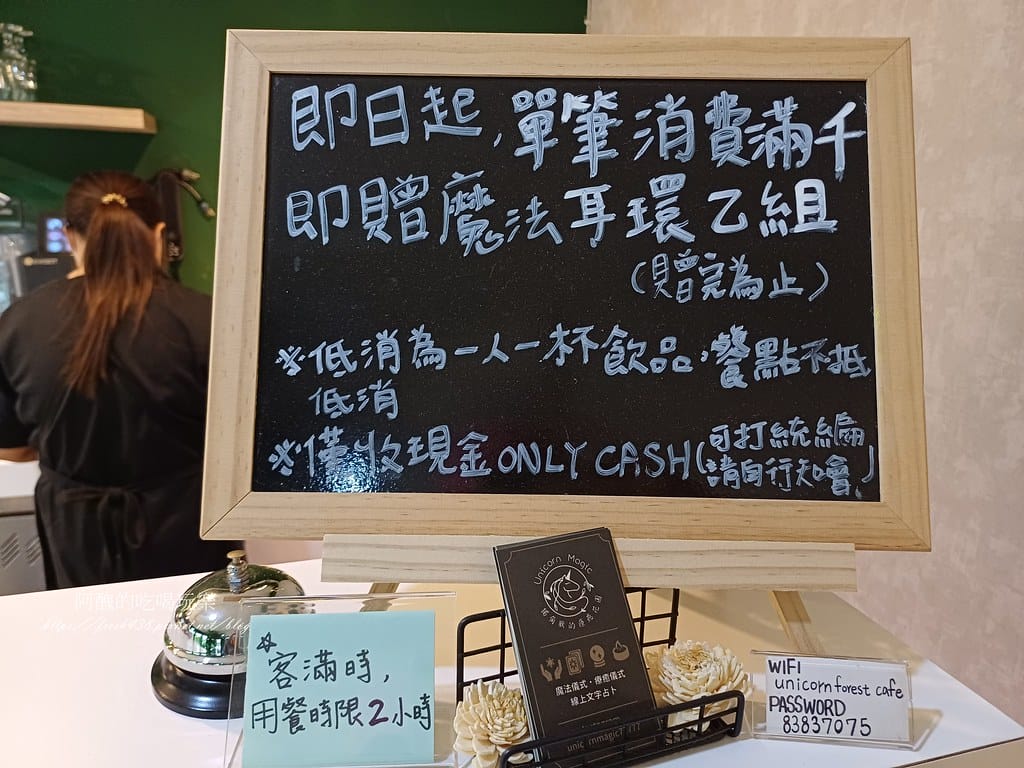 即日起,單筆消費滿千
即贈魔法耳環乙組
(贈完為止)
※低消為一人一杯飲品,餐點不抵
低消
※僅收現金ONLY CASH(可打統編
請自行知會)
Unicorn Magic
魔法儀式・療癒儀式
線上文字占卜
客滿時,
用餐時限2小時
WIFI
unicorn forest cafe
PASSWORD
83837075
阿醜的吃喝玩樂